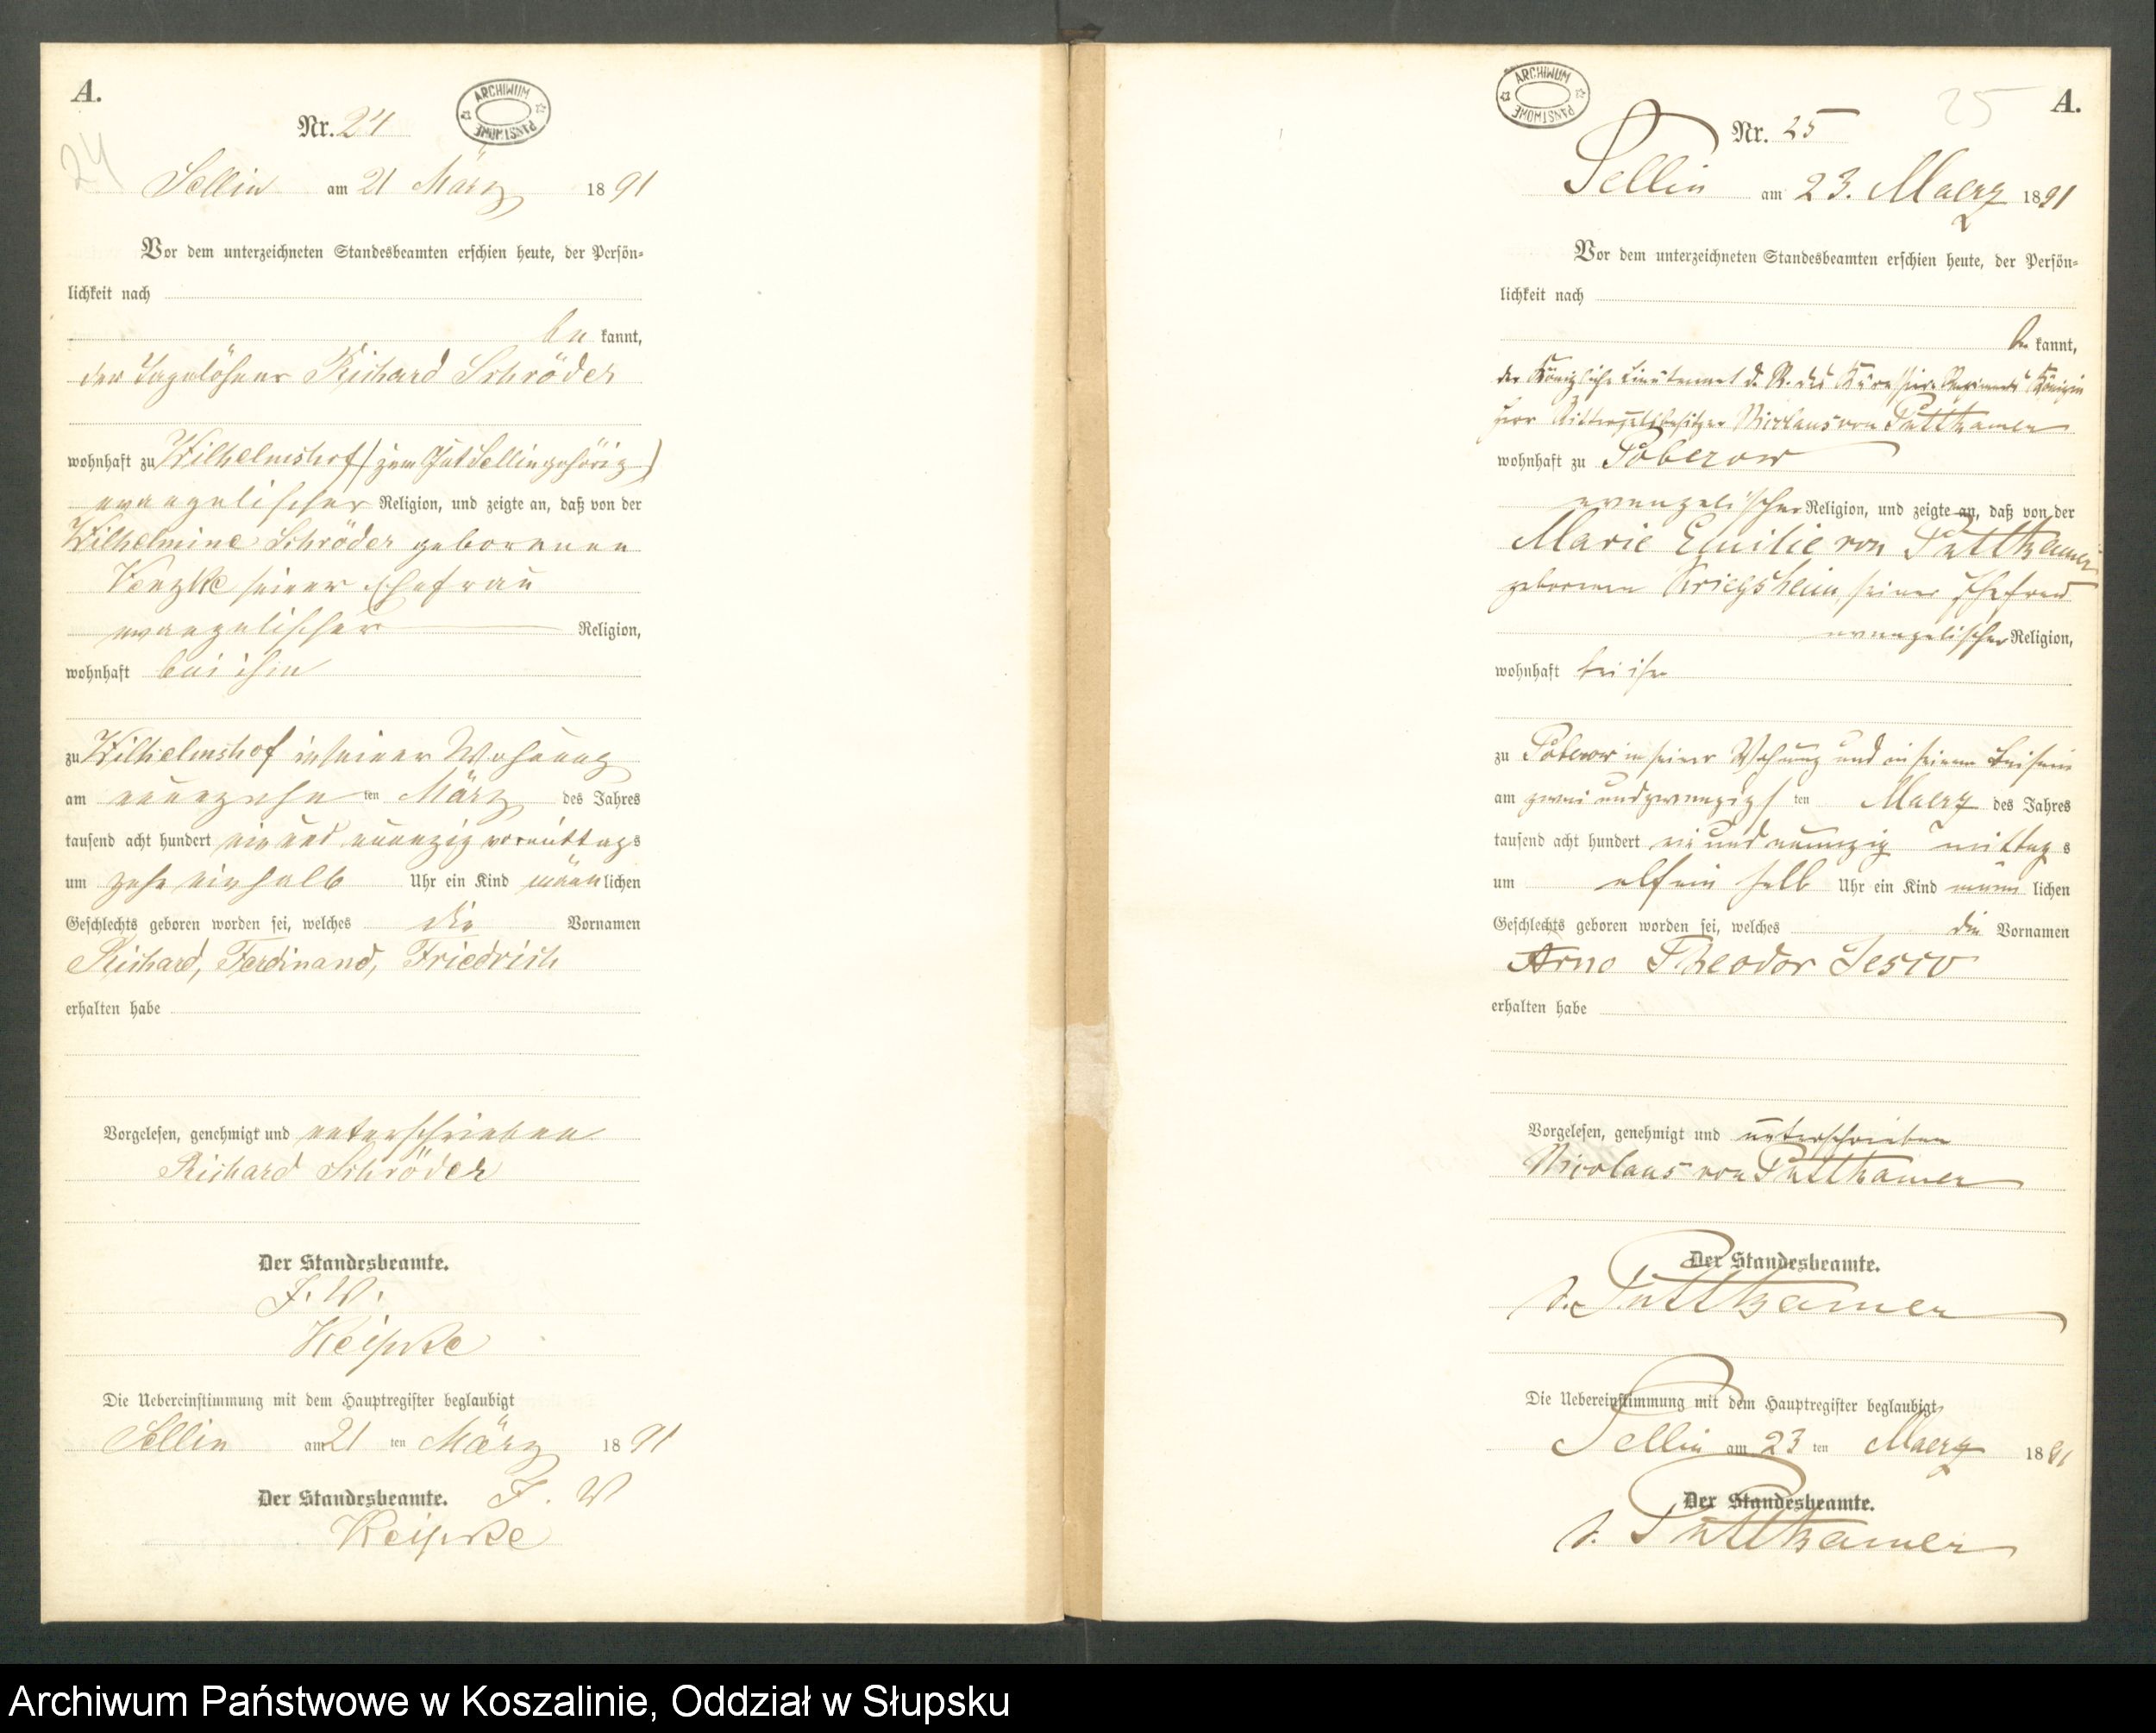 A.
Nr. 24
ARCHIWUM
PAŃSTWOWE
24
Sellin am 21 März 1891
Vor dem unterzeichneten Standesbeamten erschien heute, der Persön-
lichkeit nach
be kannt,
der Tagelöhner Richard Schröder
wohnhaft zu Wilhelmshof (zum Gut Sellin gehörig)
evangelischer Religion, und zeigte an, daß von der
Wilhelmine Schröder geborenen
Venzke seiner Ehefrau
evangelischer Religion,
wohnhaft bei ihm
zu Wilhelmshof in seiner Wohnung
am neunzehn ten März des Jahres
tausend acht hundert ein und neunzig vormittags
um zehn einhalb Uhr ein Kind männlichen
Geschlechts geboren worden sei, welches die Vornamen
Richard, Ferdinand, Friedrich
erhalten habe
Vorgelesen, genehmigt und unterschrieben
Richard Schröder
Der Standesbeamte.
J. V.
Die Uebereinstimmung mit dem Hauptregister beglaubigt
Sellin am 21 ten März 1891
Der Standesbeamte. J. V
ARCHIWUM
PAŃSTWOWE
25
A.
Nr. 25
Sellin am 23. Maerz 1891
Vor dem unterzeichneten Standesbeamten erschien heute, der Persön-
lichkeit nach
be kannt,
der Königliche Lieutenant d. R. des Kürassier Regiments Königin
Herr Rittergutsbesitzer Nicolaus von Puttkamer
wohnhaft zu Poberow
evangelischer Religion, und zeigte an, daß von der
Marie Emilie von Puttkamer
geborenen Kriegsheim, seiner Ehefrau
evangelischer Religion,
wohnhaft bei ihm
zu Poberow in seiner Wohnung und in seinem Beisein
am zwei und zwanzigs ten Maerz des Jahres
tausend acht hundert ein und neunzig mittags
um elf ein halb Uhr ein Kind männ lichen
Geschlechts geboren worden sei, welches die Vornamen
Arno Theodor Jesco
erhalten habe
Vorgelesen, genehmigt und unterschrieben
Nicolaus von Puttkamer
Der Standesbeamte.
v. Puttkamer
Die Uebereinstimmung mit dem Hauptregister beglaubigt
Sellin am 23 ten Maerz 1891
Der Standesbeamte.
v. Puttkamer
Archiwum Państwowe w Koszalinie, Oddział w Słupsku